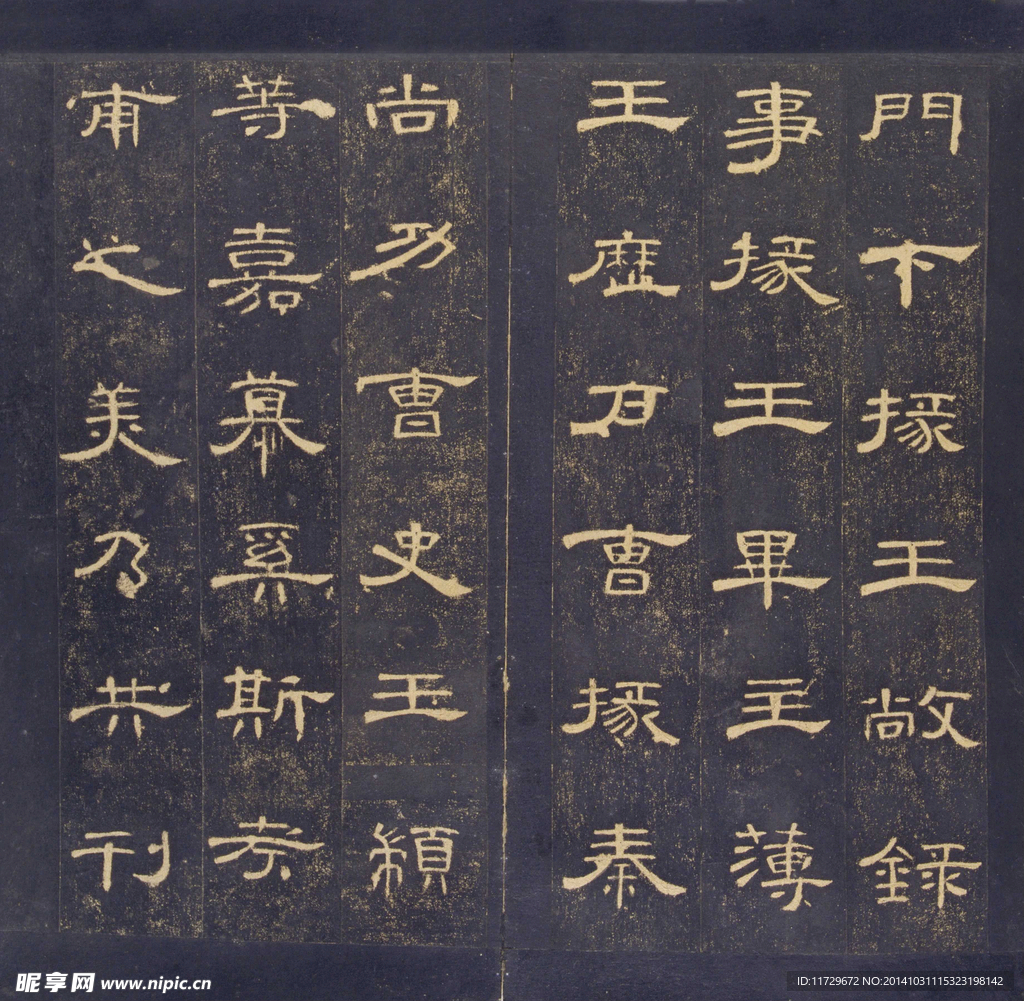 門下掾王敞録
事掾王畢主薄
王歷戶曹掾秦
尚功曹史王顓
等嘉慕奚斯考
甫之美乃共刊
昵享网 www.nipic.cn
ID:11729672 NO:20141031115323198142